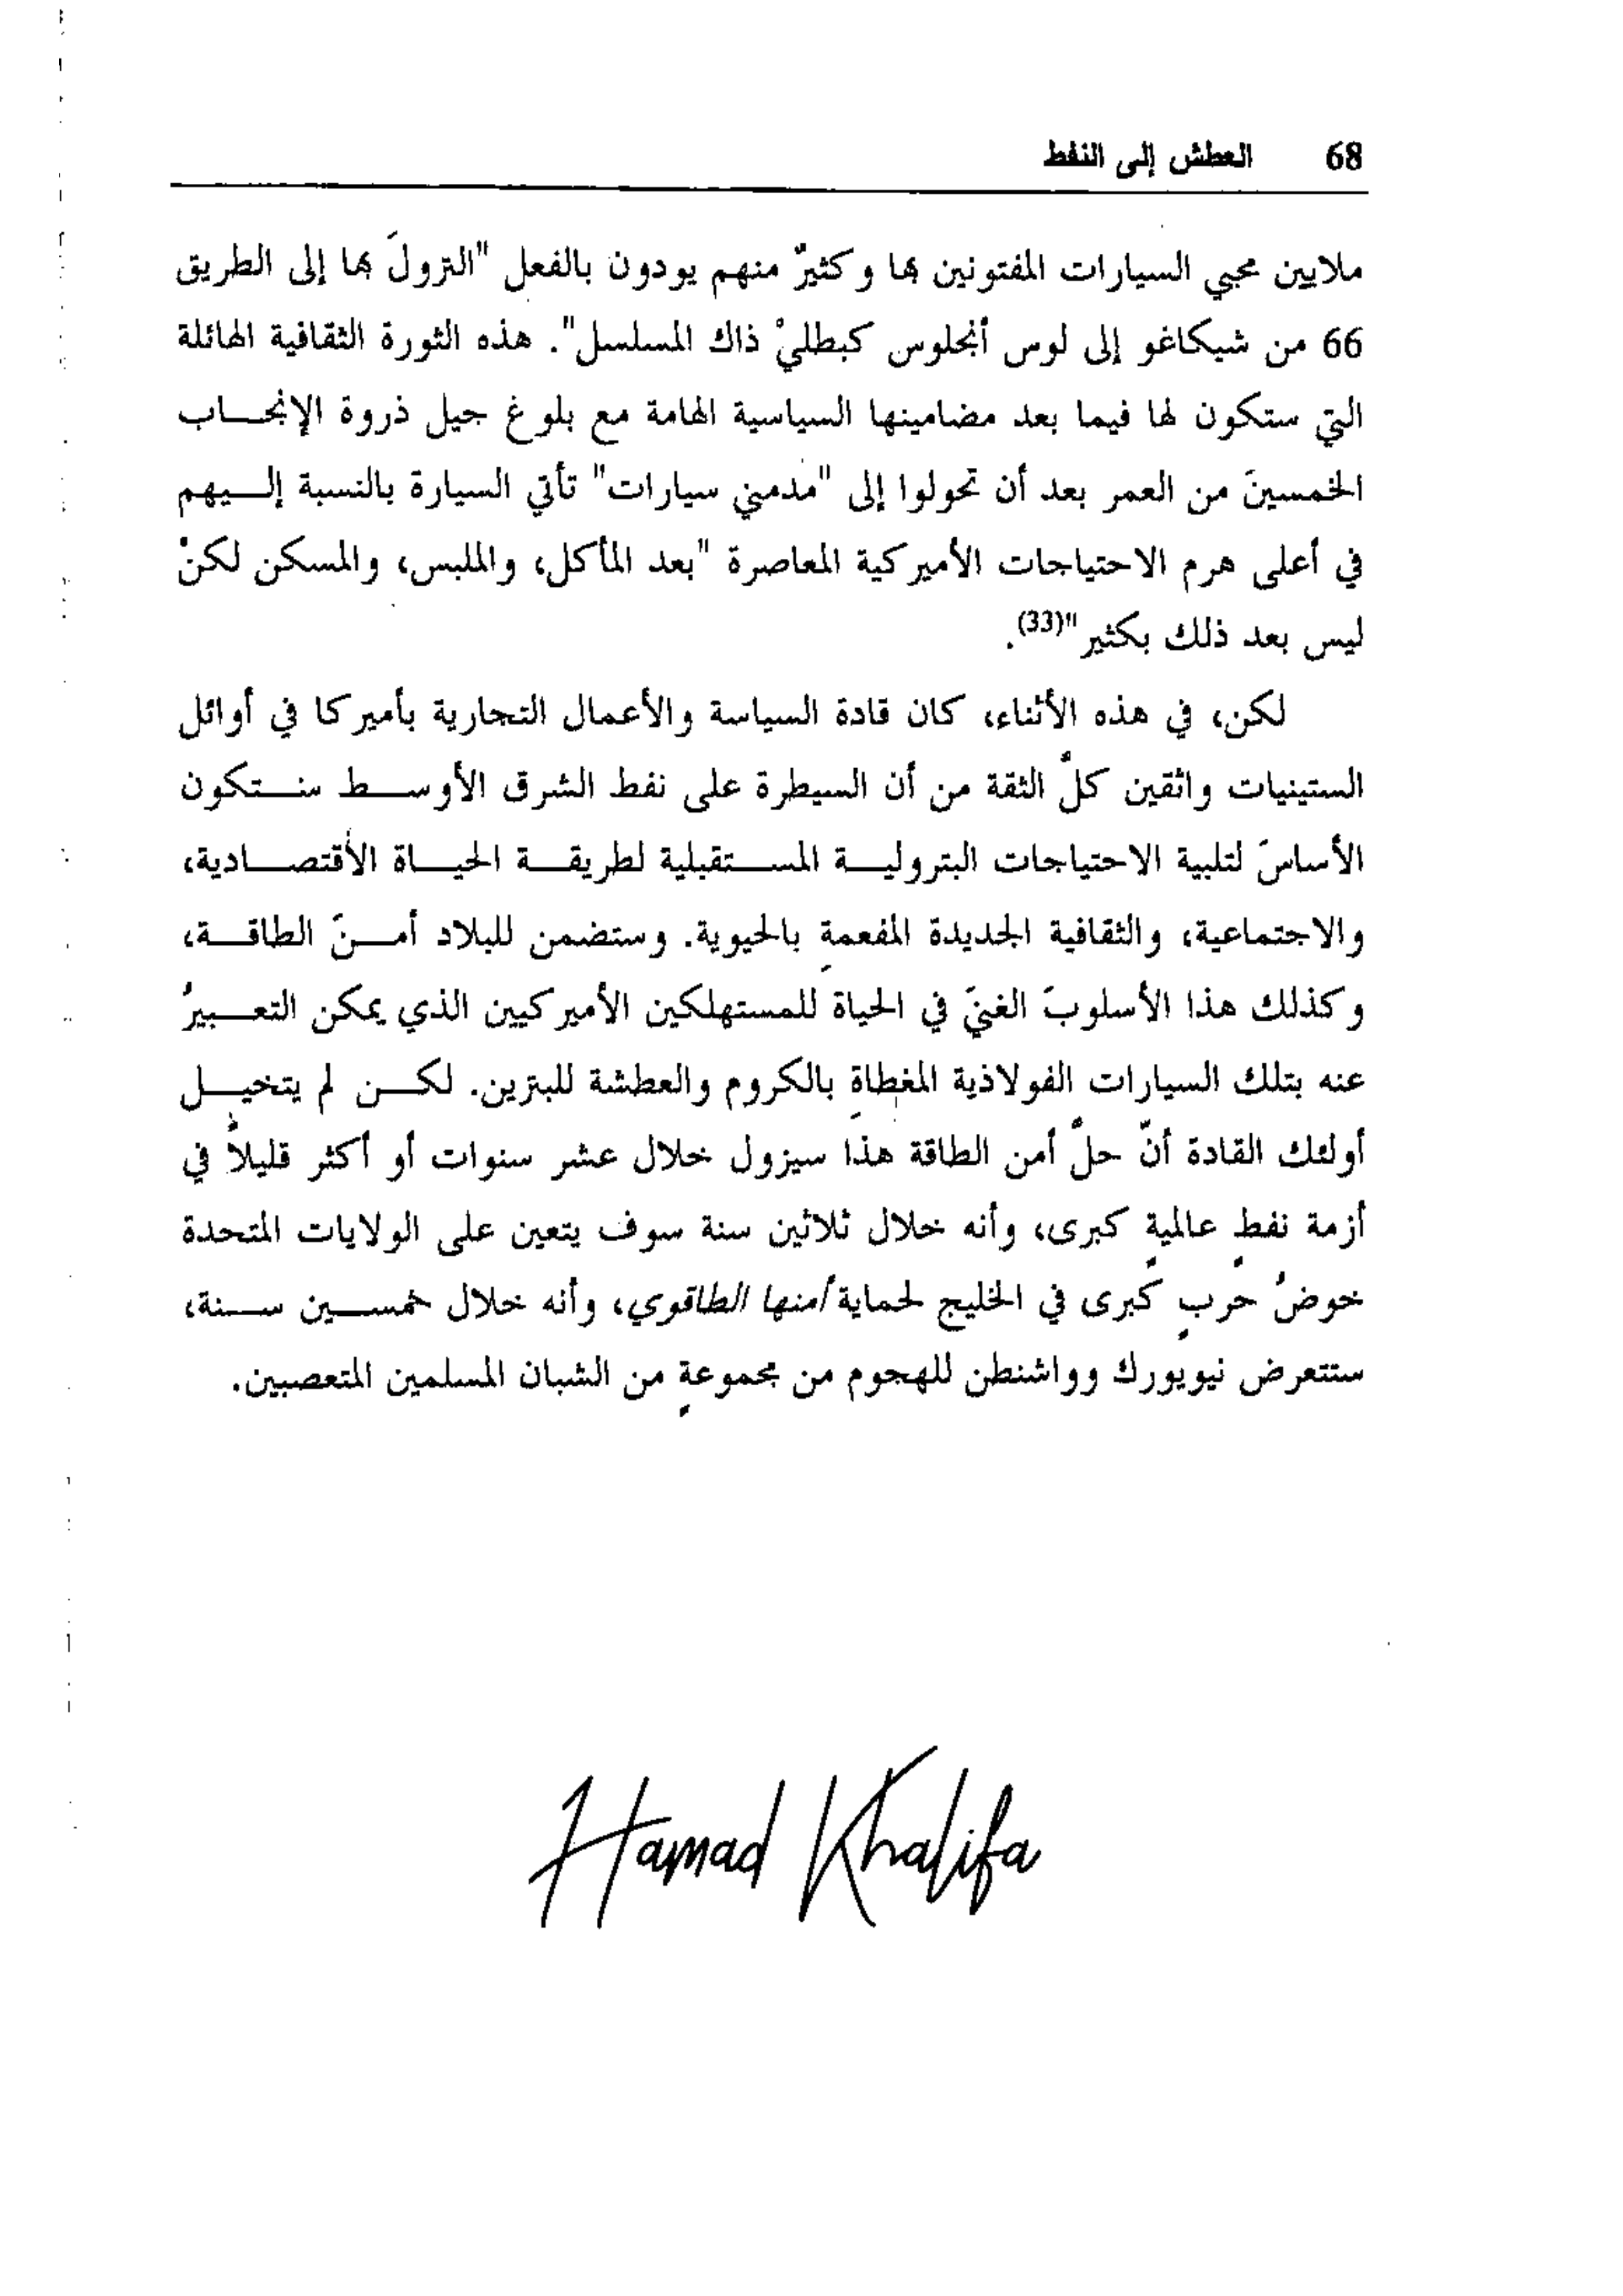 68 العطش إلى النفط
ملايين محبي السيارات المفتونين بها وكثيرٌ منهم يودون بالفعل "النزولَ بها إلى الطريق
66 من شيكاغو إلى لوس أنجلوس كبطليْ ذاك المسلسل". هذه الثورة الثقافية الهائلة
التي ستكون لها فيما بعد مضامينها السياسية الهامة مع بلوغ جيل ذروة الإنجـــاب
الخمسينَ من العمر بعد أن تحولوا إلى "مدمني سيارات" تأتي السيارة بالنسبة إلـــيهم
في أعلى هرم الاحتياجات الأميركية المعاصرة "بعد المأكل، والملبس، والمسكن لكنْ
ليس بعد ذلك بكثير"(33).
لكن، في هذه الأثناء، كان قادة السياسة والأعمال التجارية بأميركا في أوائل
الستينيات واثقين كلَّ الثقة من أن السيطرة على نفط الشرق الأوســـط ستـــكون
الأساسَ لتلبية الاحتياجات البتروليـــة المســـتقبلية لطريقـــة الحيـــاة الأقتصـــادية،
والاجتماعية، والثقافية الجديدة المفعمةِ بالحيوية. وستضمن للبلاد أمـــنَ الطاقـــة،
وكذلك هذا الأسلوبَ الغنيَ في الحياة للمستهلكين الأميركيين الذي يمكن التعـــبيرُ
عنه بتلك السيارات الفولاذية المغطاةِ بالكروم والعطشة للبنزين. لكـــن لم يتخيـــل
أولئك القادة أنّ حلَّ أمن الطاقة هذا سيزول خلال عشر سنوات أو أكثر قليلاً في
أزمة نفطٍ عالميةٍ كبرى، وأنه خلال ثلاثين سنة سوف يتعين على الولايات المتحدة
خوضُ حربٍ كبرى في الخليج لحماية أمنها الطاقوي، وأنه خلال خمســـين ســـنة،
ستتعرض نيويورك وواشنطن للهجوم من مجموعةٍ من الشبان المسلمين المتعصبين.
Hamad Khalifa